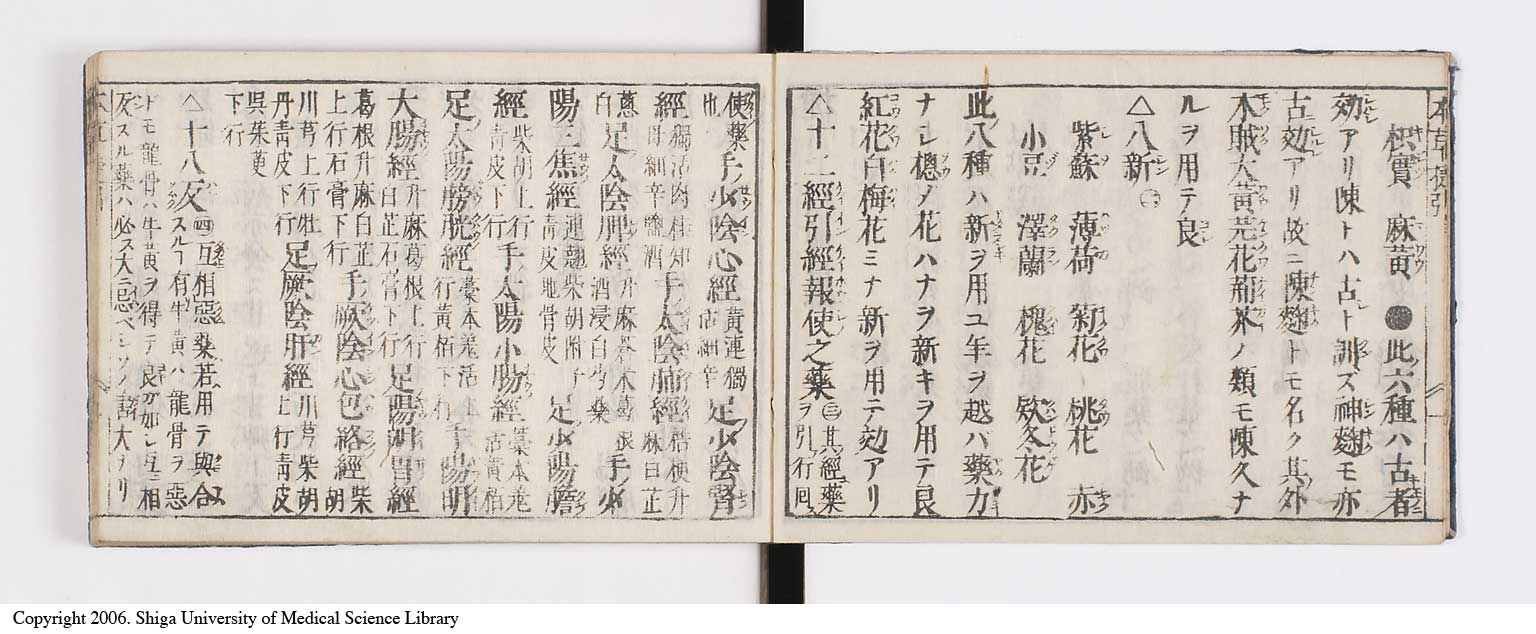 枳實 麻黄 ●此六種ハ古者
効アリ陳トハ古ト訓ズ神麹モ亦
古効アリ故ニ陳麹トモ名ク其外
木賊大黄芫花荊芥ノ類モ陳久ナ
ルヲ用テ良
△八新㊂
紫蘇 薄荷 菊花 桃花 赤
小豆 澤蘭 槐花 欵冬花
此八種ハ新ヲ用ユ年ヲ越バ藥力
ナシ樬ノ花ハナヲ新キヲ用テ良
紅花白梅花ミナ新ヲ用テ効アリ
△十二經引經報使之藥㊂其經藥ヲ引行
使藥也 手少陰心經黄連獨活細辛 足少陰腎
經獨活肉桂知母細辛鹽酒 手太陰肺經桔梗升麻白芷
蔥白 足太陰脾經升麻蒼朮葛根酒浸白芍藥 手少
陽三焦經連翹柴胡附子青皮地骨皮 足少陽膽
經柴胡上行青皮下行 手太陽小腸經藁本羌活黄栢
足太陽膀胱經藁本羌活上行黄栢下行 手陽明
大腸經升麻葛根上行白芷石膏下行 足陽明胃經
葛根升麻白芷上行石膏下行 手厥陰心包絡經柴胡
川芎上行牡丹青皮下行 足厥陰肝經川芎柴胡上行青皮
吳茱萸下行
△十八反㊃互相惡藥若用テ與合
スルヿ有牛黄ハ龍骨ヲ惡
ドモ龍骨ハ牛黄ヲ得テ良如シ互相
反スル藥ハ必ズ大ニ忌ベシソノ諸大ヨリ
Copyright 2006. Shiga University of Medical Science Library